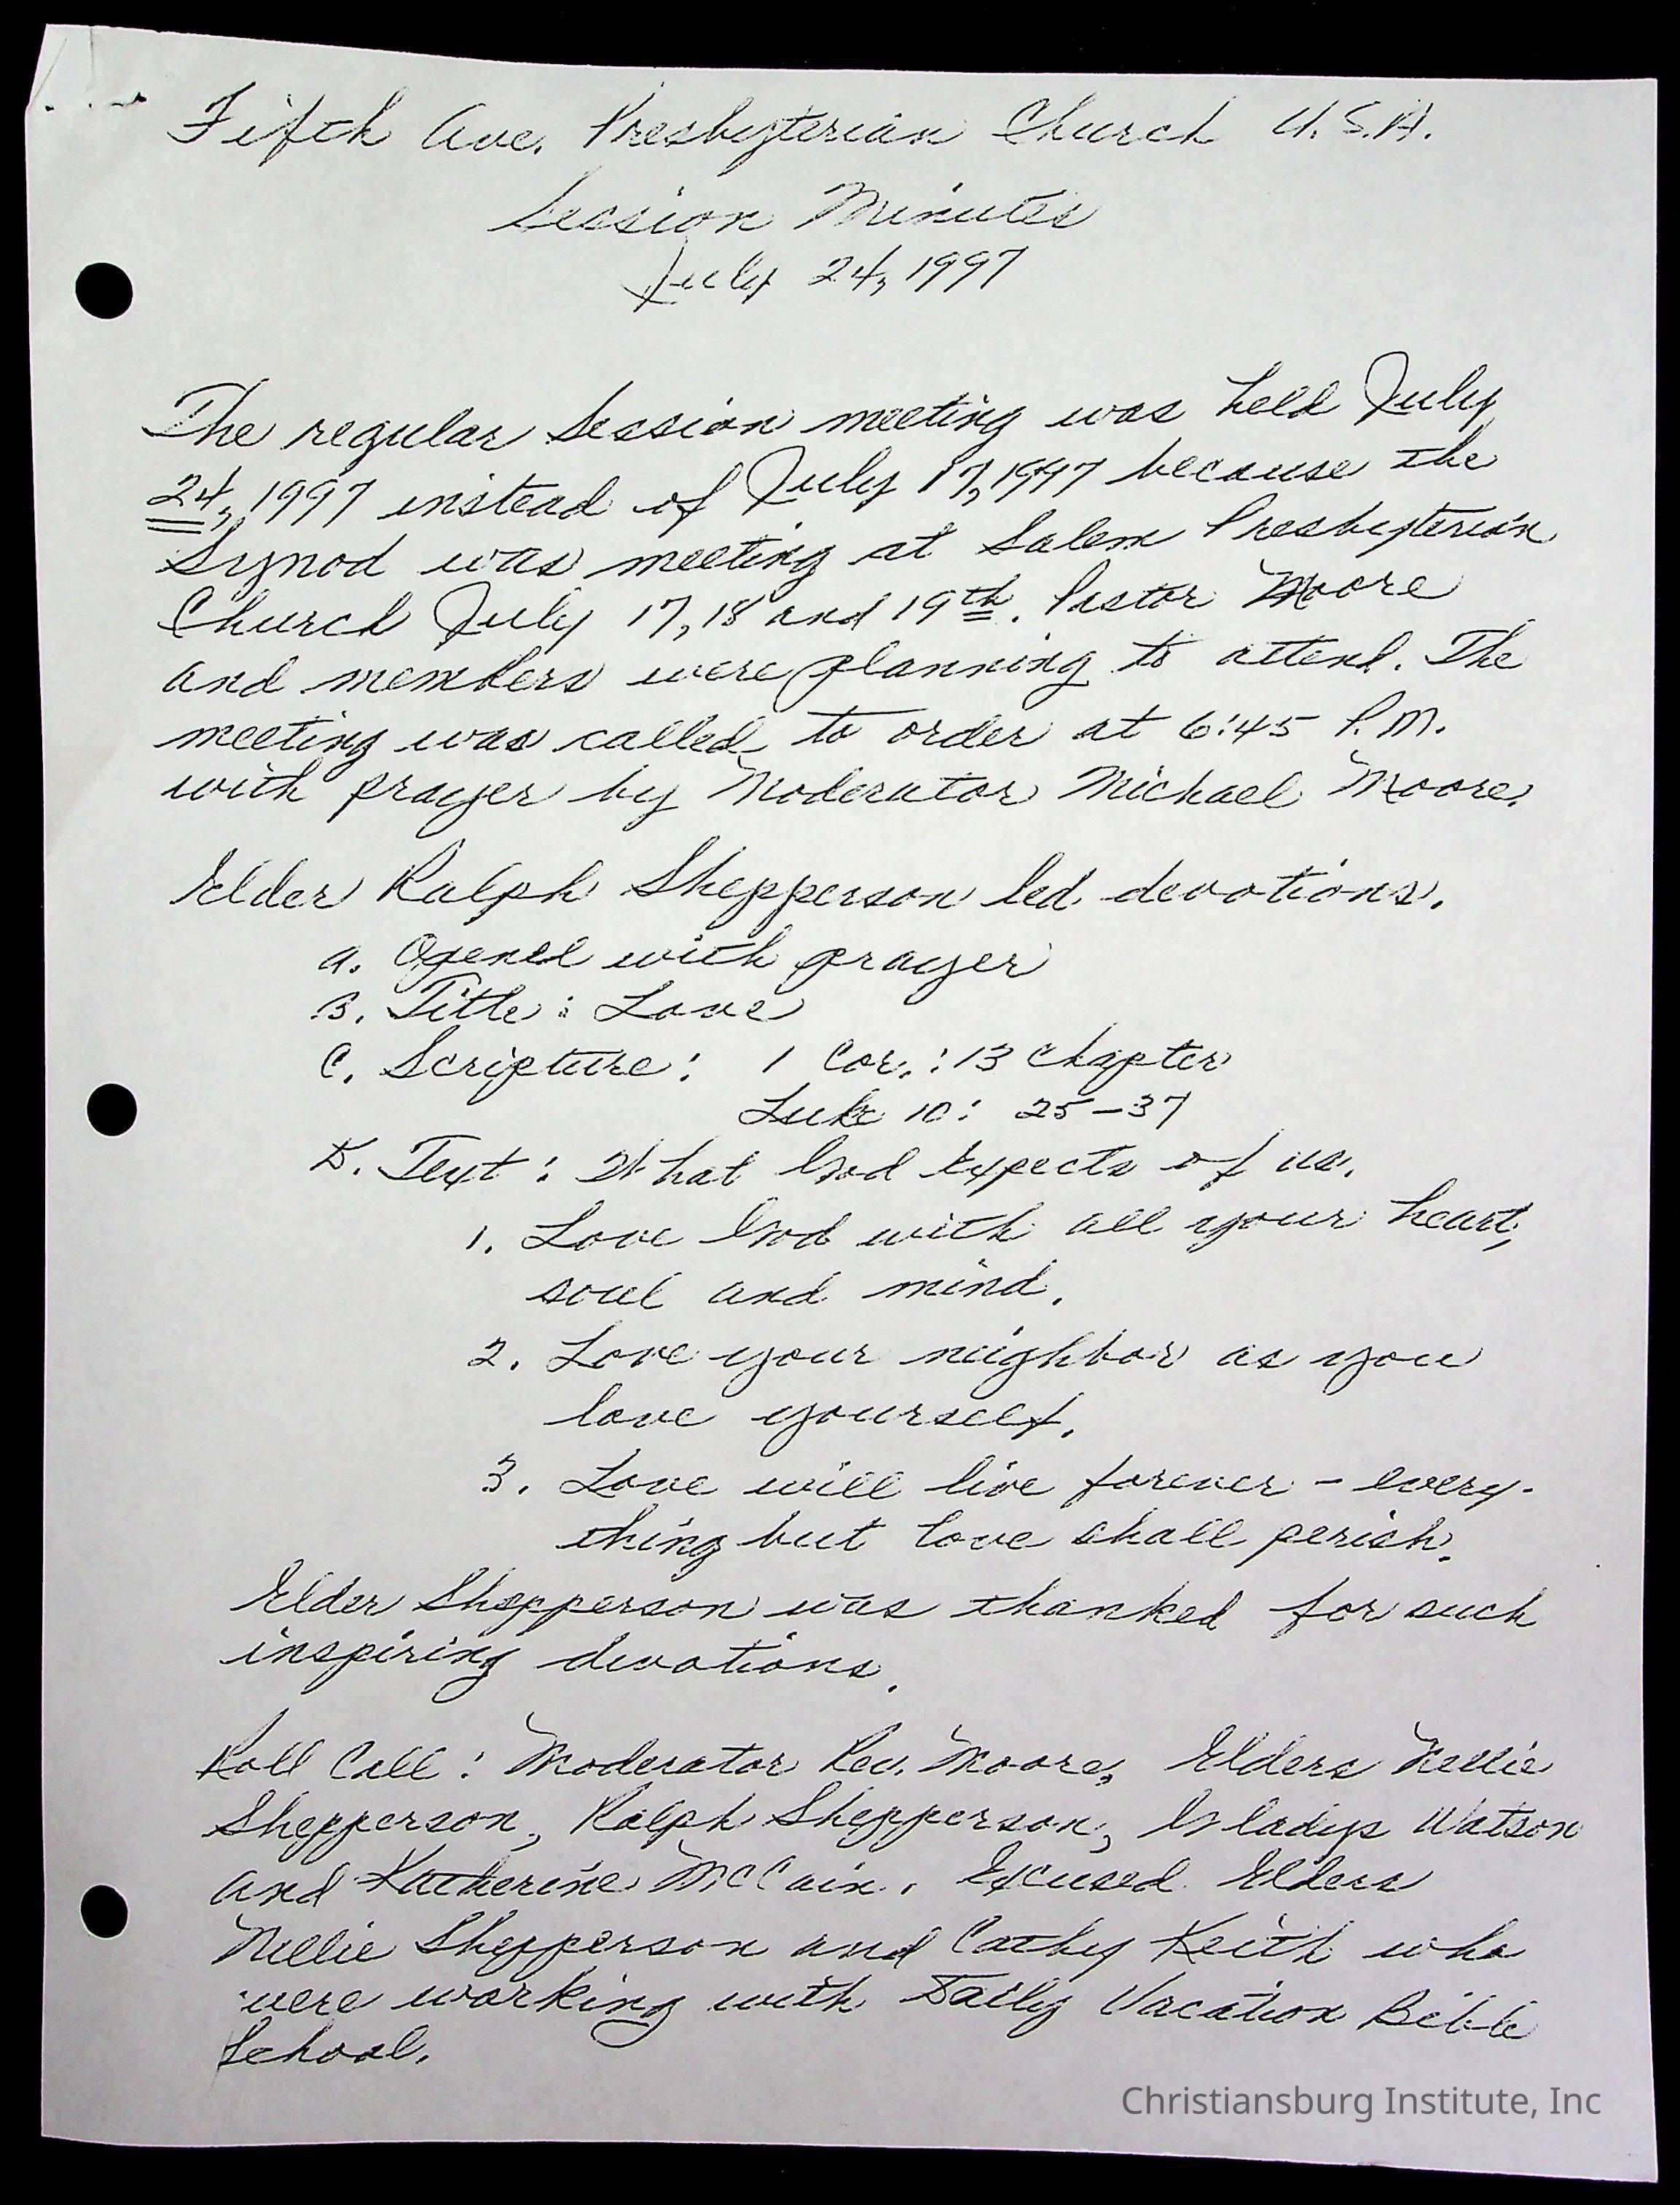 Fifth Ave. Presbyterian Church U.S.A.
Session Minutes
July 24, 1997
The regular Session meeting was held July
24, 1997 instead of July 17, 1997 because the
Synod was meeting at Salem Presbyterian
Church July 17, 18 and 19th. Pastor Moore
and members were planning to attend. The
meeting was called to order at 6:45 P.M.
with prayer by Moderator Michael Moore.
Elder Ralph Shepperson led devotions.
A. Opened with prayer
B. Title: Love
C. Scripture: 1 Cor.: 13 Chapter
Luke 10: 25-37
D. Text: What God Expects of us.
1. Love God with all your heart,
soul and mind.
2. Love your neighbor as you
love yourself.
3. Love will live forever - every-
thing but love shall perish.
Elder Shepperson was thanked for such
inspiring devotions.
Roll Call: Moderator Rev. Moore, Elders Nellie
Shepperson, Ralph Shepperson, Gladys Watson
and Katherine McCain. Excused Elders
Nellie Shepperson and Cathy Keith who
were working with Daily Vacation Bible
School.
Christiansburg Institute, Inc